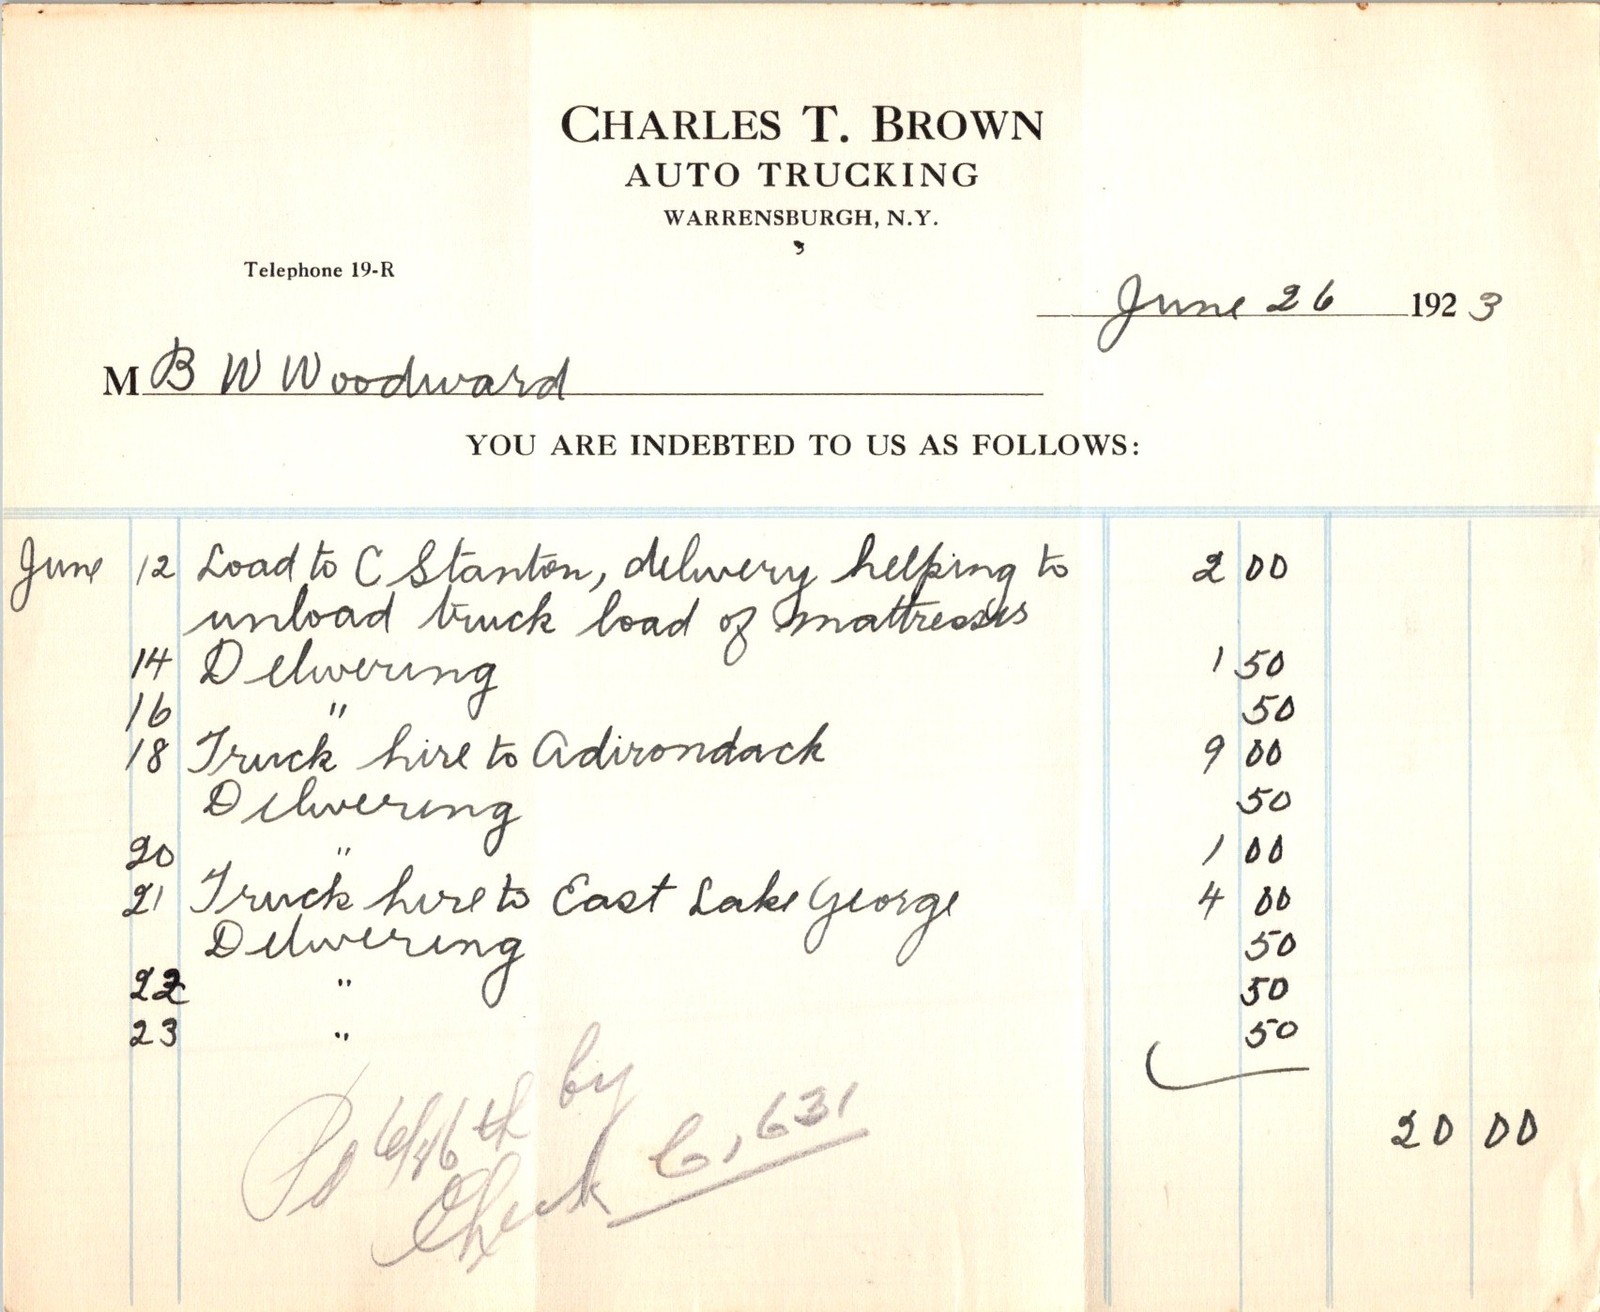 CHARLES T. BROWN
AUTO TRUCKING
WARRENSBURGH, N.Y.
Telephone 19-R
June 26 1923
M B W Woodward
YOU ARE INDEBTED TO US AS FOLLOWS:
June 12 Load to C Stanton, delivery helping to 2 00
unload truck load of mattresses
14 Delivering 1 50
16 " 50
18 Truck hire to Adirondack 9 00
Delivering 50
20 " 1 00
21 Truck hire to East Lake George 4 00
Delivering 50
22 " 50
23 " 50
20 00
Pd by
Check 6,631